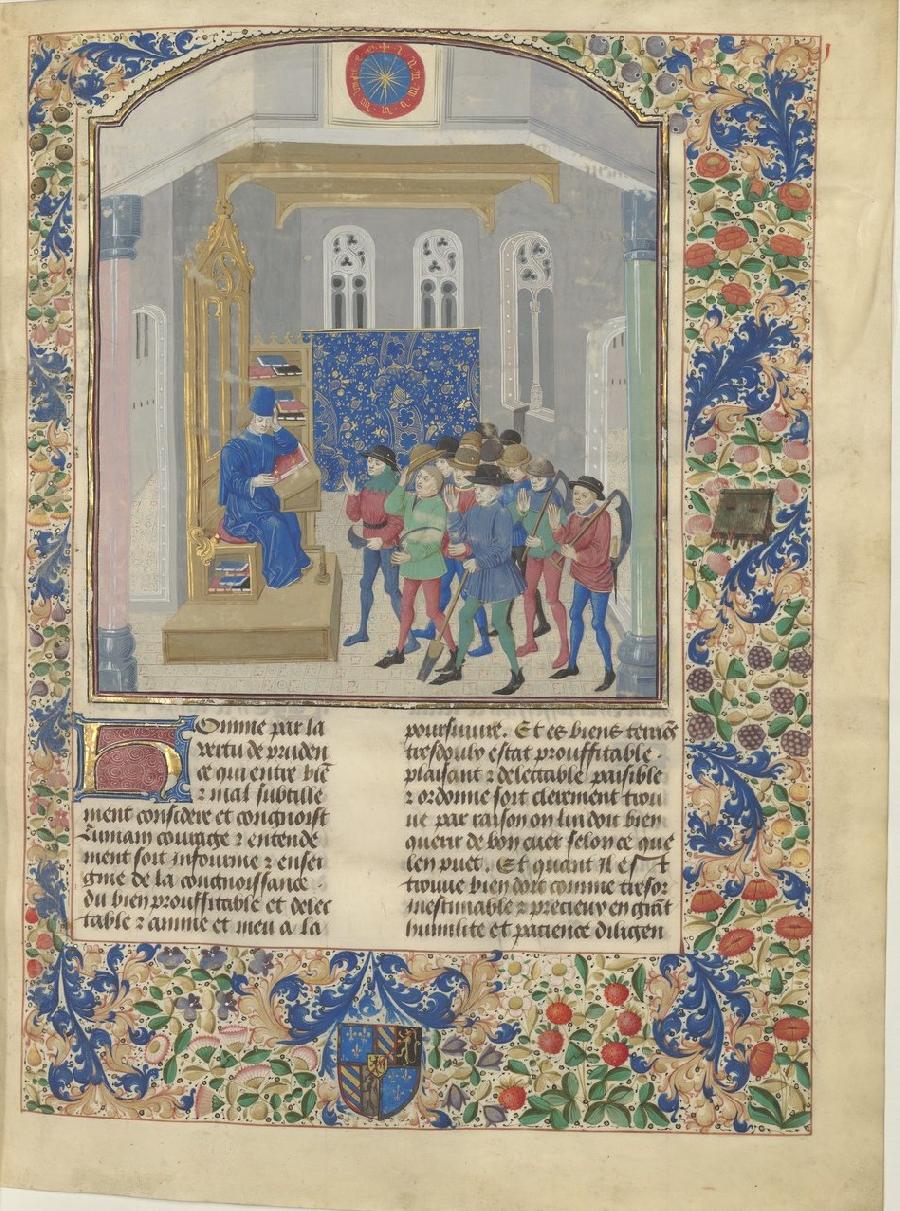 Homme par la
vertu de pruden
ce qui entre bie
⁊ mal subtille
ment considere et congnoist
humain couraige ⁊ entende
ment fort informe ⁊ ensei
gnie de la congnoissance
du bien prouffitable et delec
table ⁊ amme et meu a la
poursuiure. Et ce bien
tresdoulx estat prouffitable
plaisant ⁊ delectable paisible
⁊ ordonne fort clerement trou
ue par raison on lui doit bien
querir de bon cuer selon ce que
len puet. Et quant il est
trouue bien doit comme tresor
inestimable ⁊ precieux en grant
humilite et patience diligen